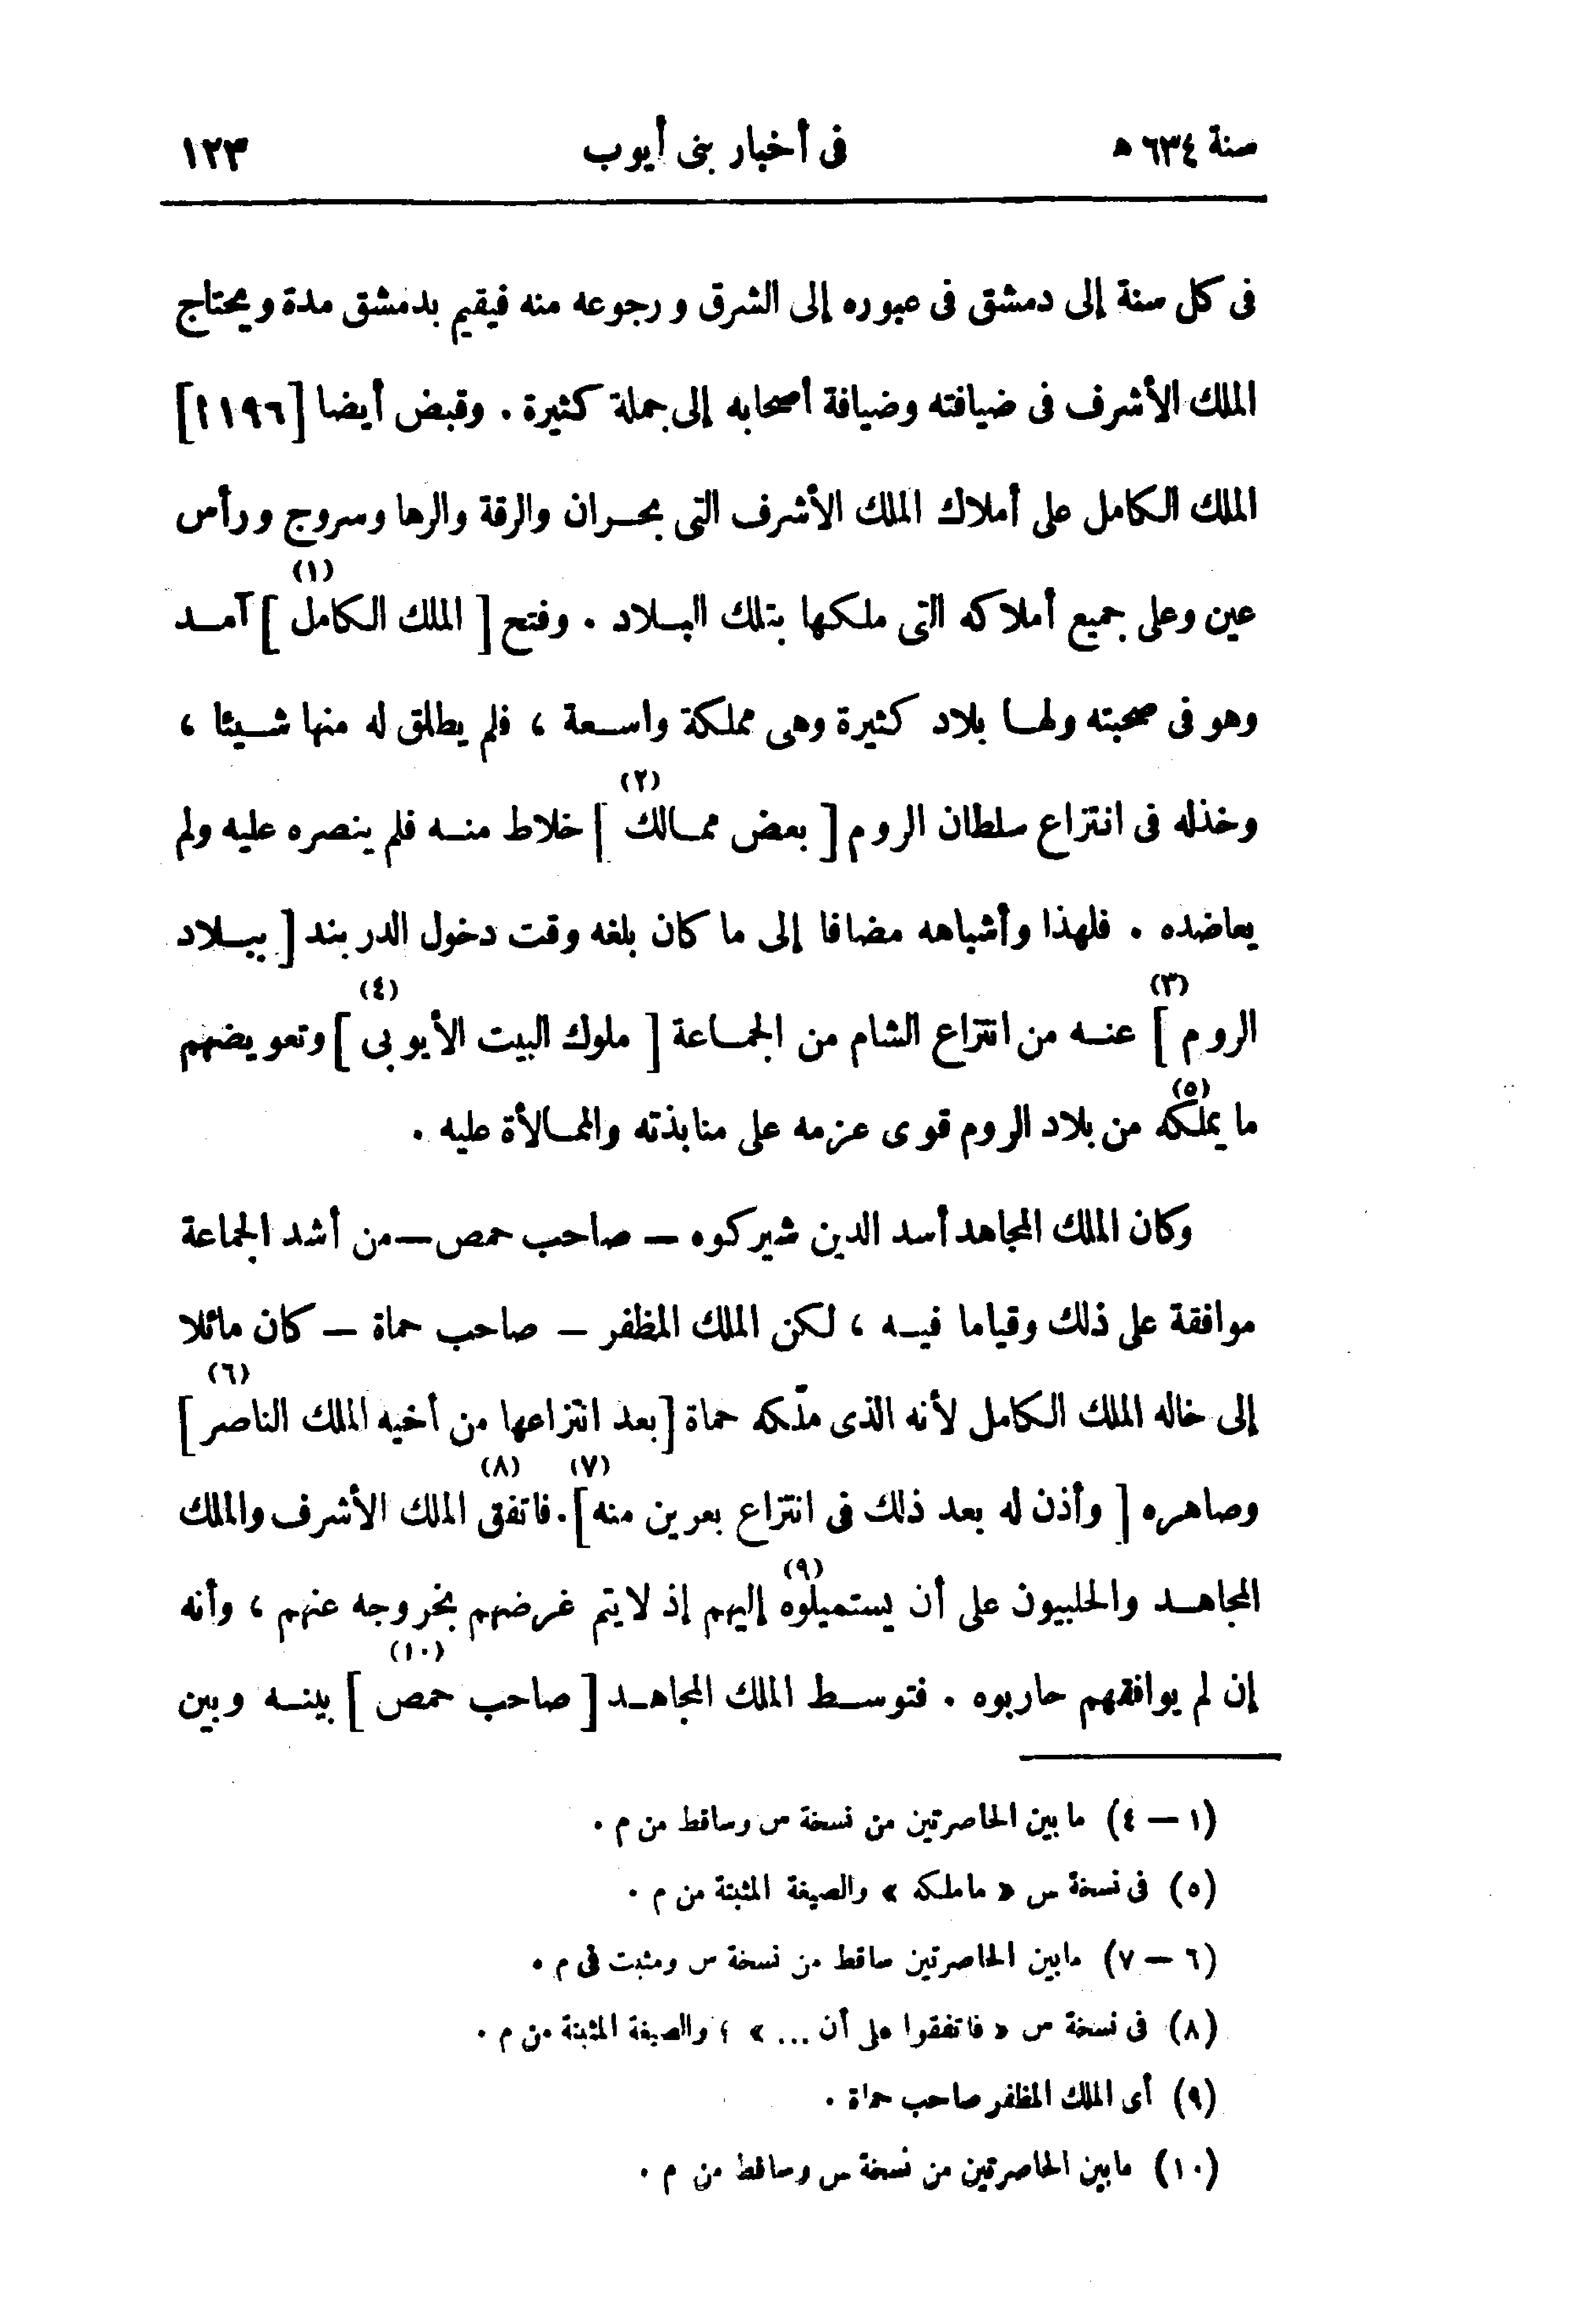 سنة ٦٣٤ ه فى أخبار بنى أيوب ١٢٣
فى كل سنة إلى دمشق فى عبوره إلى الشرق ورجوعه منه فيقيم بدمشق مدة ويحتاج
الملك الأشرف فى ضيافته وضيافة أصحابه إلى جملة كثيرة . وقبض أيضا [ ١٩٦ ا ]
الملك الكامل على أملاك الملك الأشرف التى بحران والرقة والرها وسروج ورأس
عين وعلى جميع أملاكه التى ملكها بتلك البلاد . وفتح [ الملك الكامل ](١) آمد
وهو فى صحبته ولها بلاد كثيرة وهى مملكة واسعة ، فلم يطلق له منها شيئا ،
وخذله فى انتزاع سلطان الروم [ بعض ممالك ](٢) خلاط منه فلم ينصره عليه ولم
يعاضده . فلهذا وأشباهه مضافا إلى ما كان بلغه وقت دخول الدربند [ ببلاد
الروم ](٣) عنه من انتزاع الشام من الجماعة [ ملوك البيت الأيوبى ](٤) وتعويضهم
ما يملكه(٥) من بلاد الروم قوى عزمه على منابذته والممالأة عليه .
وكان الملك المجاهد أسد الدين شيركوه – صاحب حمص – من أشد الجماعة
موافقة على ذلك وقياما فيه ، لكن الملك المظفر – صاحب حماة – كان مائلا
إلى خاله الملك الكامل لأنه الذى ملّكه حماة [ بعد انتزاعها من أخيه الملك الناصر ](٦)
وصاهره [ وأذن له بعد ذلك فى انتزاع بعرين منه ](٧) . فاتفق(٨) الملك الأشرف والملك
المجاهد والحلبيون على أن يستميلوه(٩) إليهم إذ لا يتم غرضهم بخروجه عنهم ، وأنه
إن لم يوافقهم حاربوه . فتوسط الملك المجاهد [ صاحب حمص ](١٠) بينه وبين
(١ – ٤) ما بين الحاصرتين من نسخة س وساقط من م .
(٥) فى نسخة س « ما ملكه » والصيغة المثبتة من م .
(٦ – ٧) ما بين الحاصرتين ساقط من نسخة س ومثبت فى م .
(٨) فى نسخة س « فاتفقوا على أن ... » ؛ والصيغة المثبتة من م .
(٩) أى الملك المظفر صاحب حماة .
(١٠) ما بين الحاصرتين من نسخة س وساقط من م .